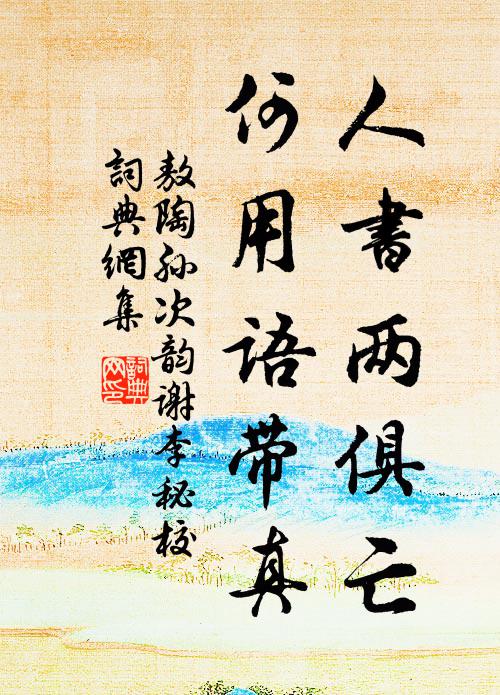 人書两俱亡
何用語带真
敖陶孙次韵謝李秘校
詞典網集
詞典网印